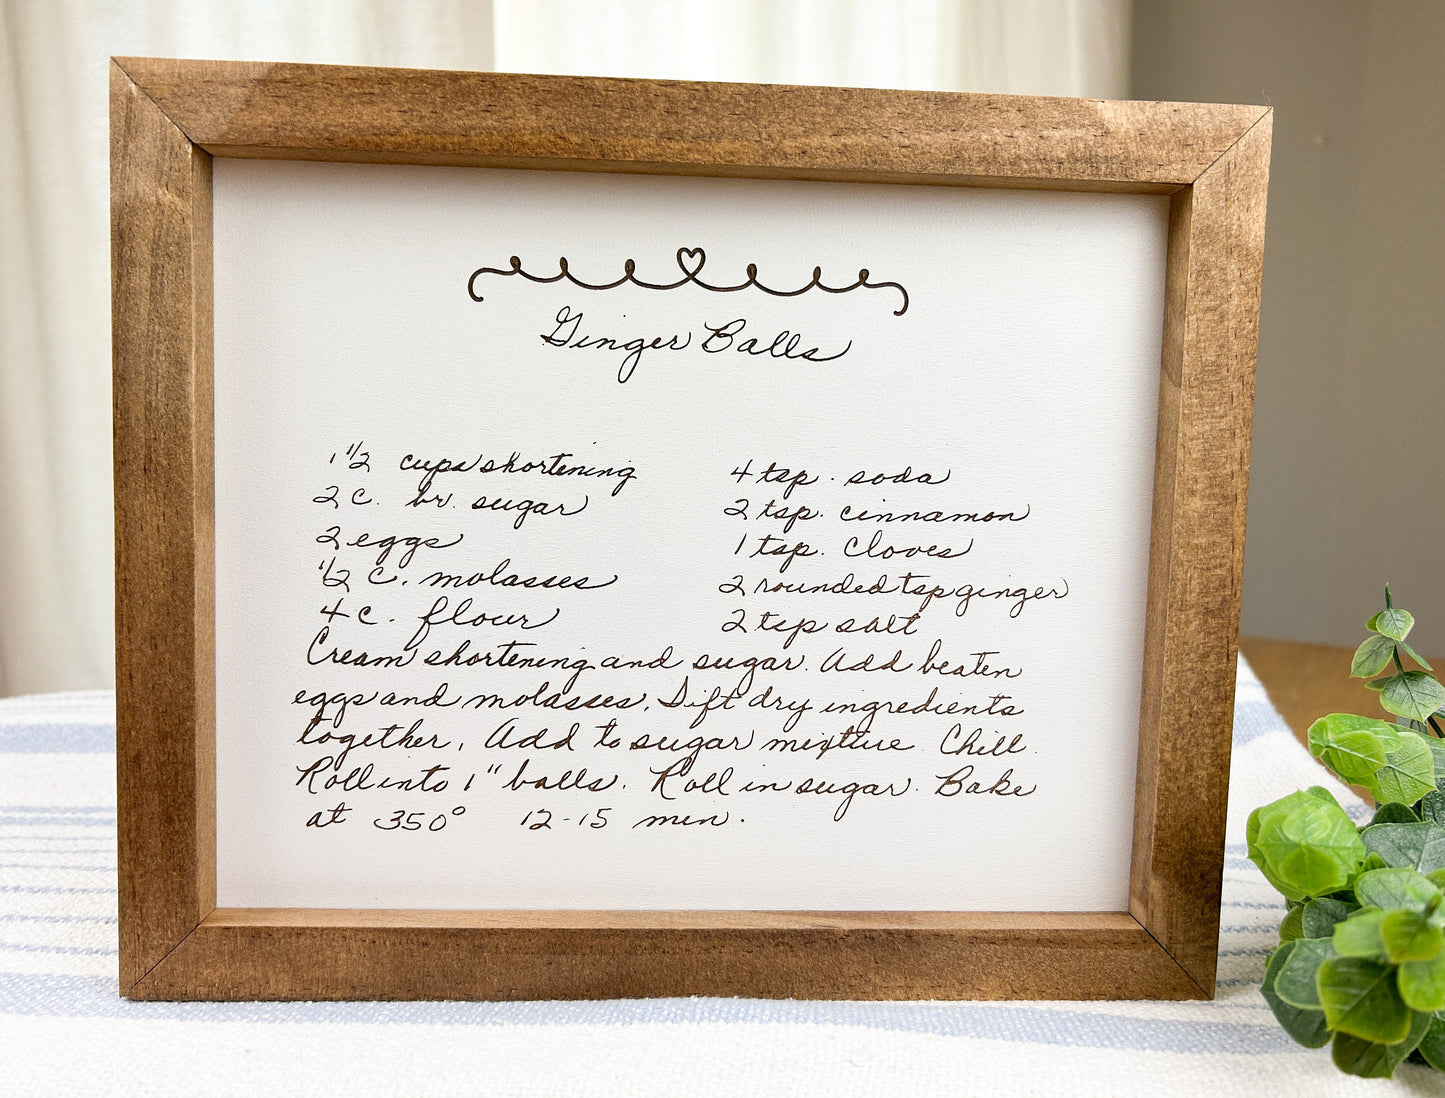 Ginger Balls
1 1/2 cups shortening
2 c. br. sugar
2 eggs
1/2 c. molasses
4 c. flour
4 tsp. soda
2 tsp. cinnamon
1 tsp. cloves
2 rounded tsp ginger
2 tsp salt
Cream shortening and sugar. Add beaten
eggs and molasses. Sift dry ingredients
together. Add to sugar mixture. Chill.
Roll into 1" balls. Roll in sugar. Bake
at 350° 12-15 min.